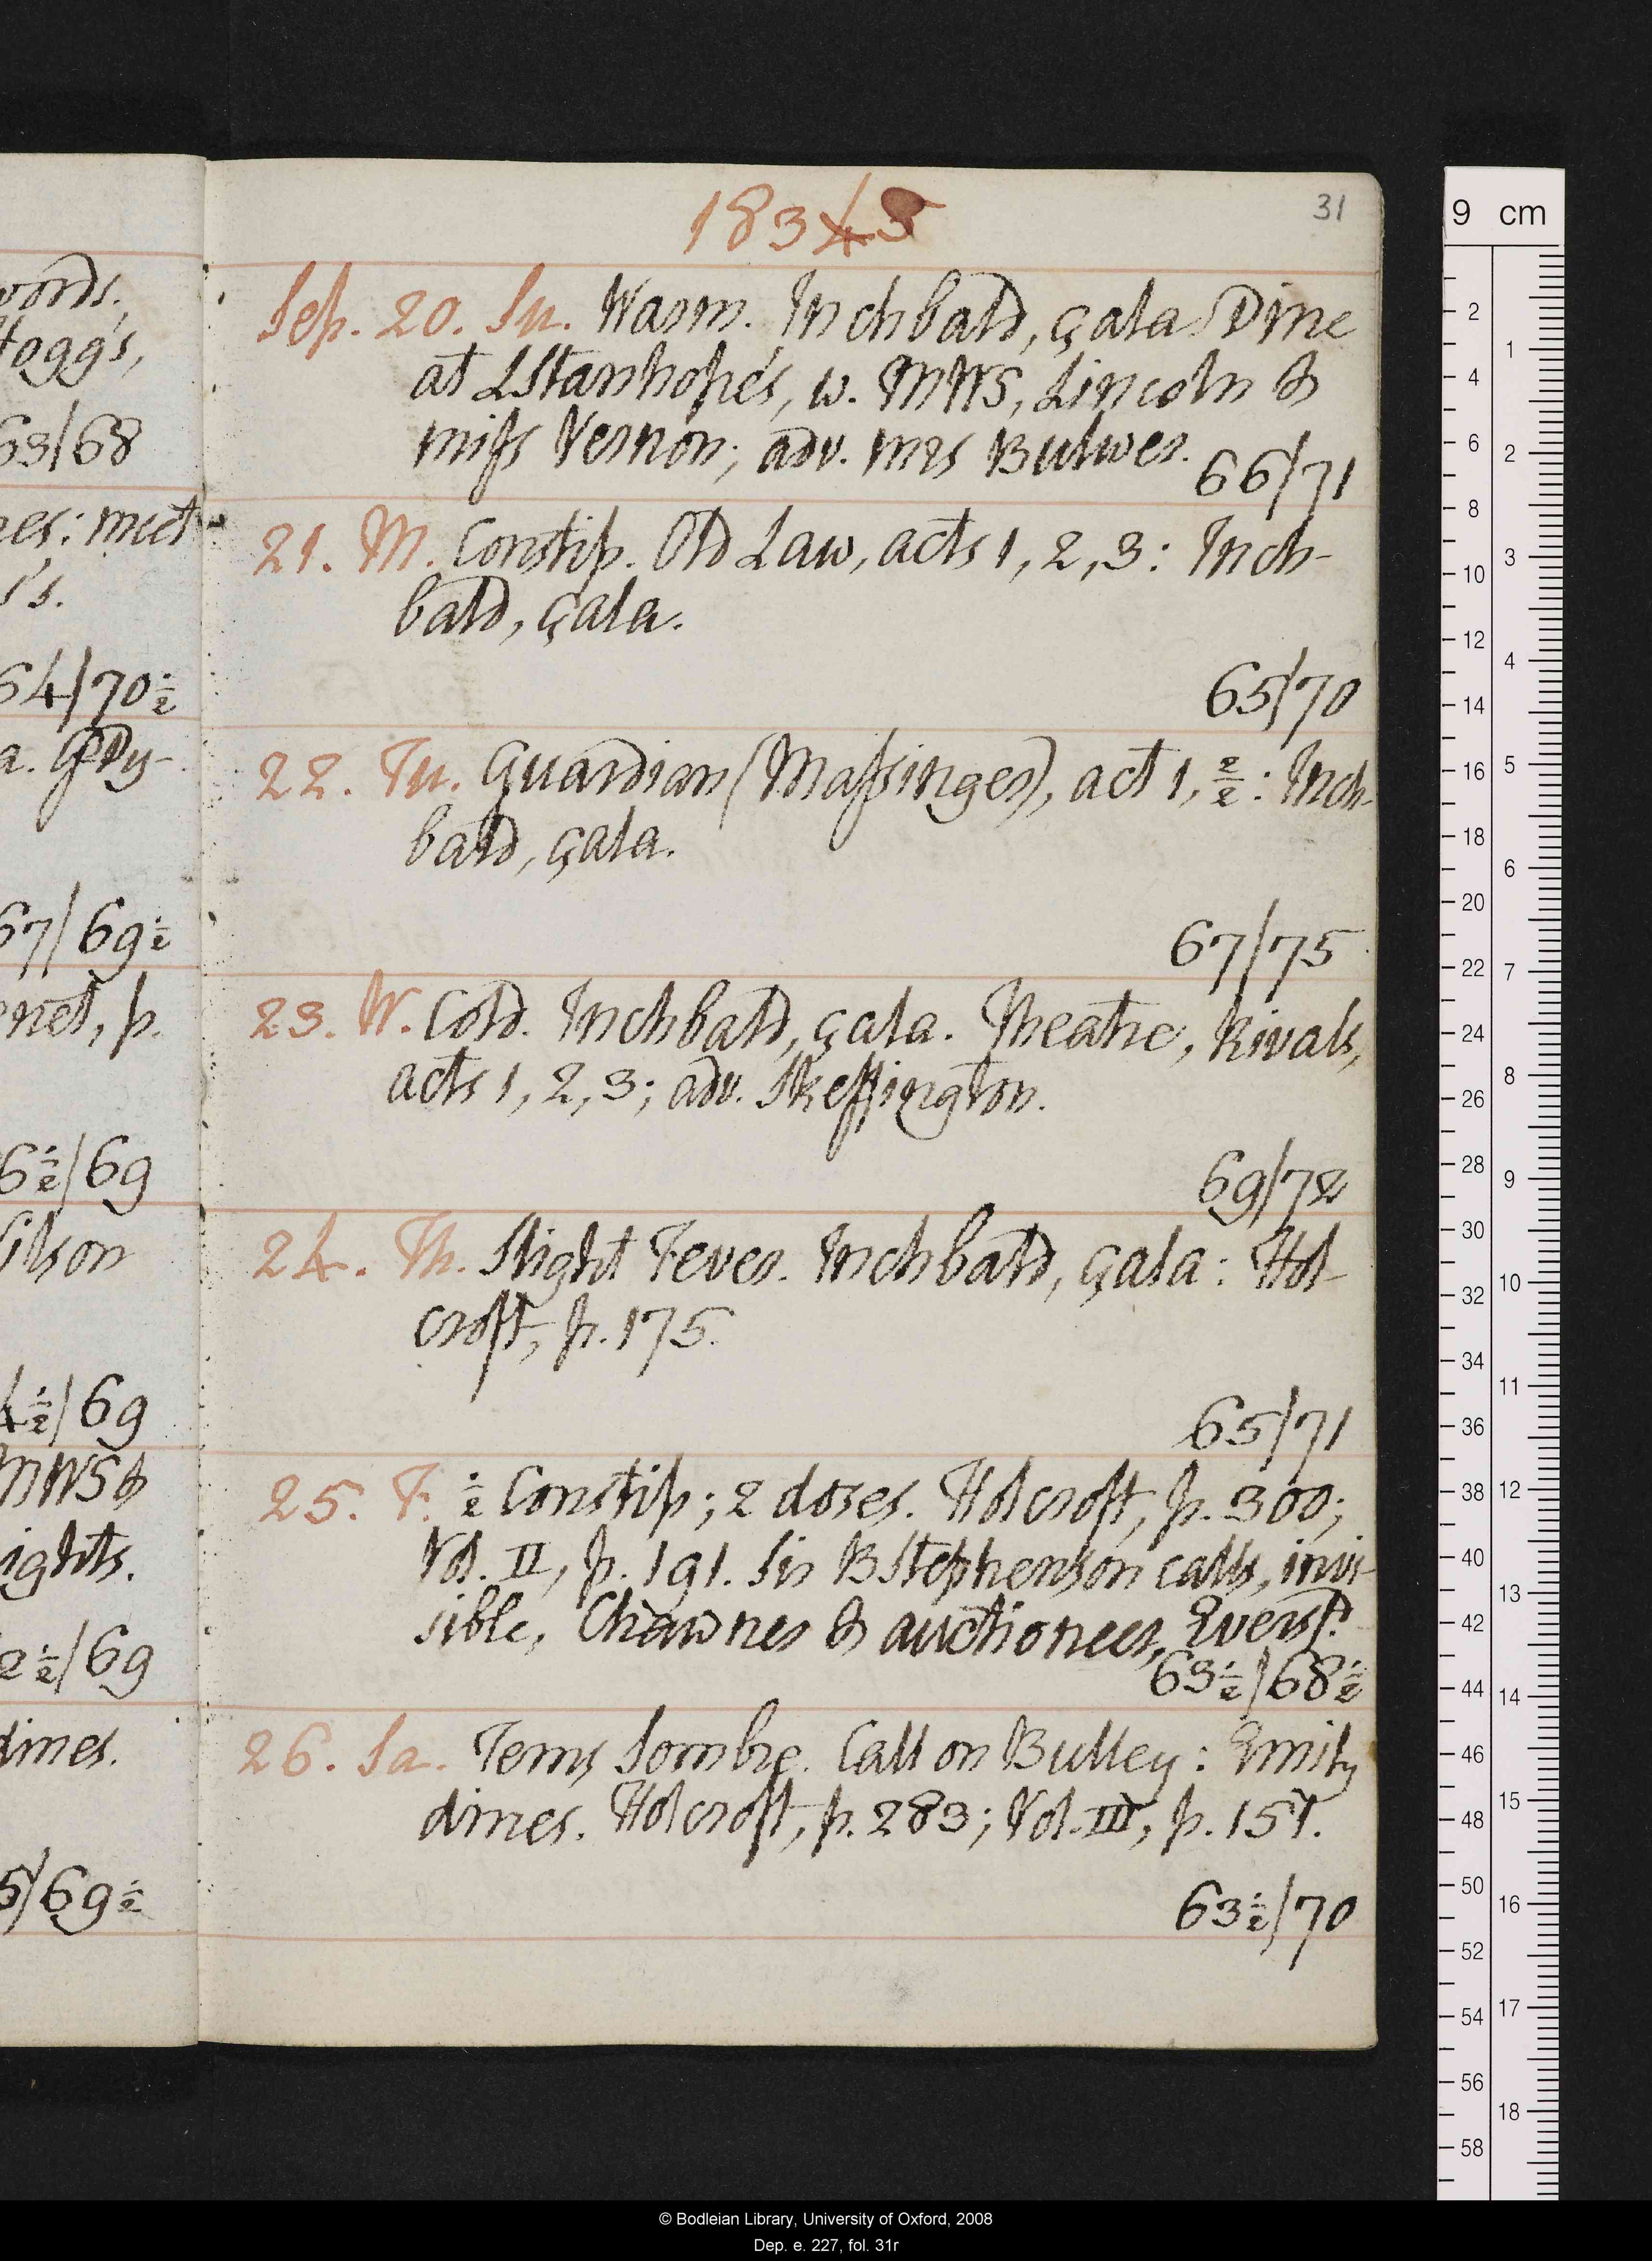 vords,
Hogg's,
63/68
es: meet
s's.
64/70½
a. GDy-
67/69½
net, p.
6½/69
ilson
4½/69
MWS &
ights.
2½/69
dines.
5/69½
31
18345
Sep. 20. Su. Warm. Inchbald, çala. Dine
at LStanhope's, w. MWS, Lincoln &
miss Vernon; adv. mrs Bulwer.
66/71
21. M. Constip. Old Law, acts 1, 2, 3: Inch-
bald, çala.
65/70
22. Tu. Guardian (Massinger), act 1, 2/2: Inch-
bald, çala.
67/75
23. W. Cold. Inchbald, çala. Theatre, Rivals,
acts 1, 2, 3; adv. Skeffington.
69/72
24. Th. Slight Fever. Inchbald, çala: Hol-
croft, p. 175.
65/71
25. F. ½ Constip; 2 doses. Holcroft, p. 300;
Vol. II, p. 191. Sir BStephenson calls, invi-
sible, Chawner & auctioneer, Everst?
63½/68½
26. Sa. Tems Sombre. Call on Bulley: Emily
dines. Holcroft, p. 283; Vol. III, p. 157.
63½/70
9 cm
2
4
6
8
10
12
14
16
18
20
22
24
26
28
30
32
34
36
38
40
42
44
46
48
50
52
54
56
58
1
2
3
4
5
6
7
8
9
10
11
12
13
14
15
16
17
18
© Bodleian Library, University of Oxford, 2008
Dep. e. 227, fol. 31r